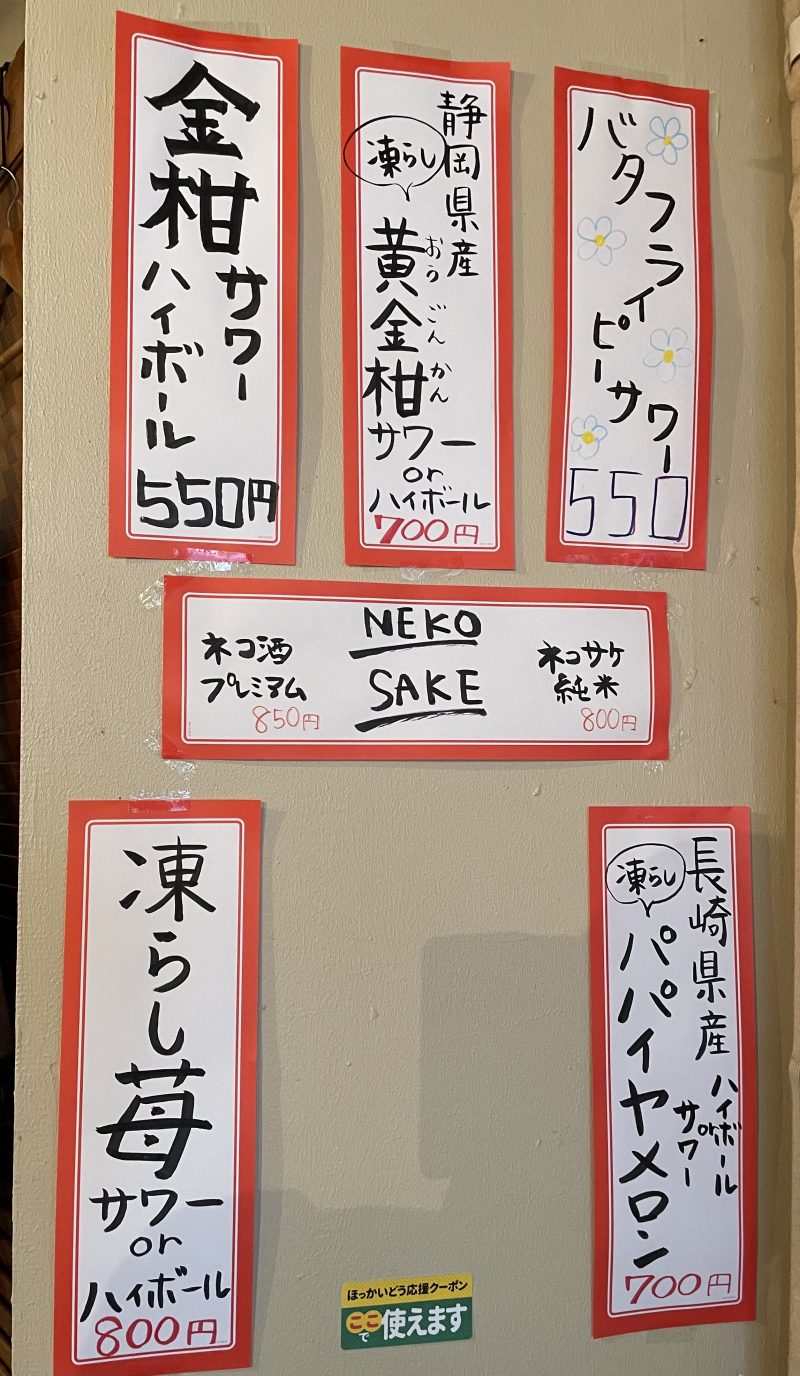 金柑
サワー
ハイボール
550円
静岡県産
凍らし
黄金柑
おうごんかん
サワー
or
ハイボール
700円
バタフライ
ピーサワー
550
NEKO
SAKE
ネコ酒
プレミアム
850円
ネコサケ
純米
800円
凍らし苺
サワー
or
ハイボール
800円
長崎県産
凍らし
パパイヤメロン
ハイボール
or
サワー
700円
ほっかいどう応援クーポン
ここで使えます